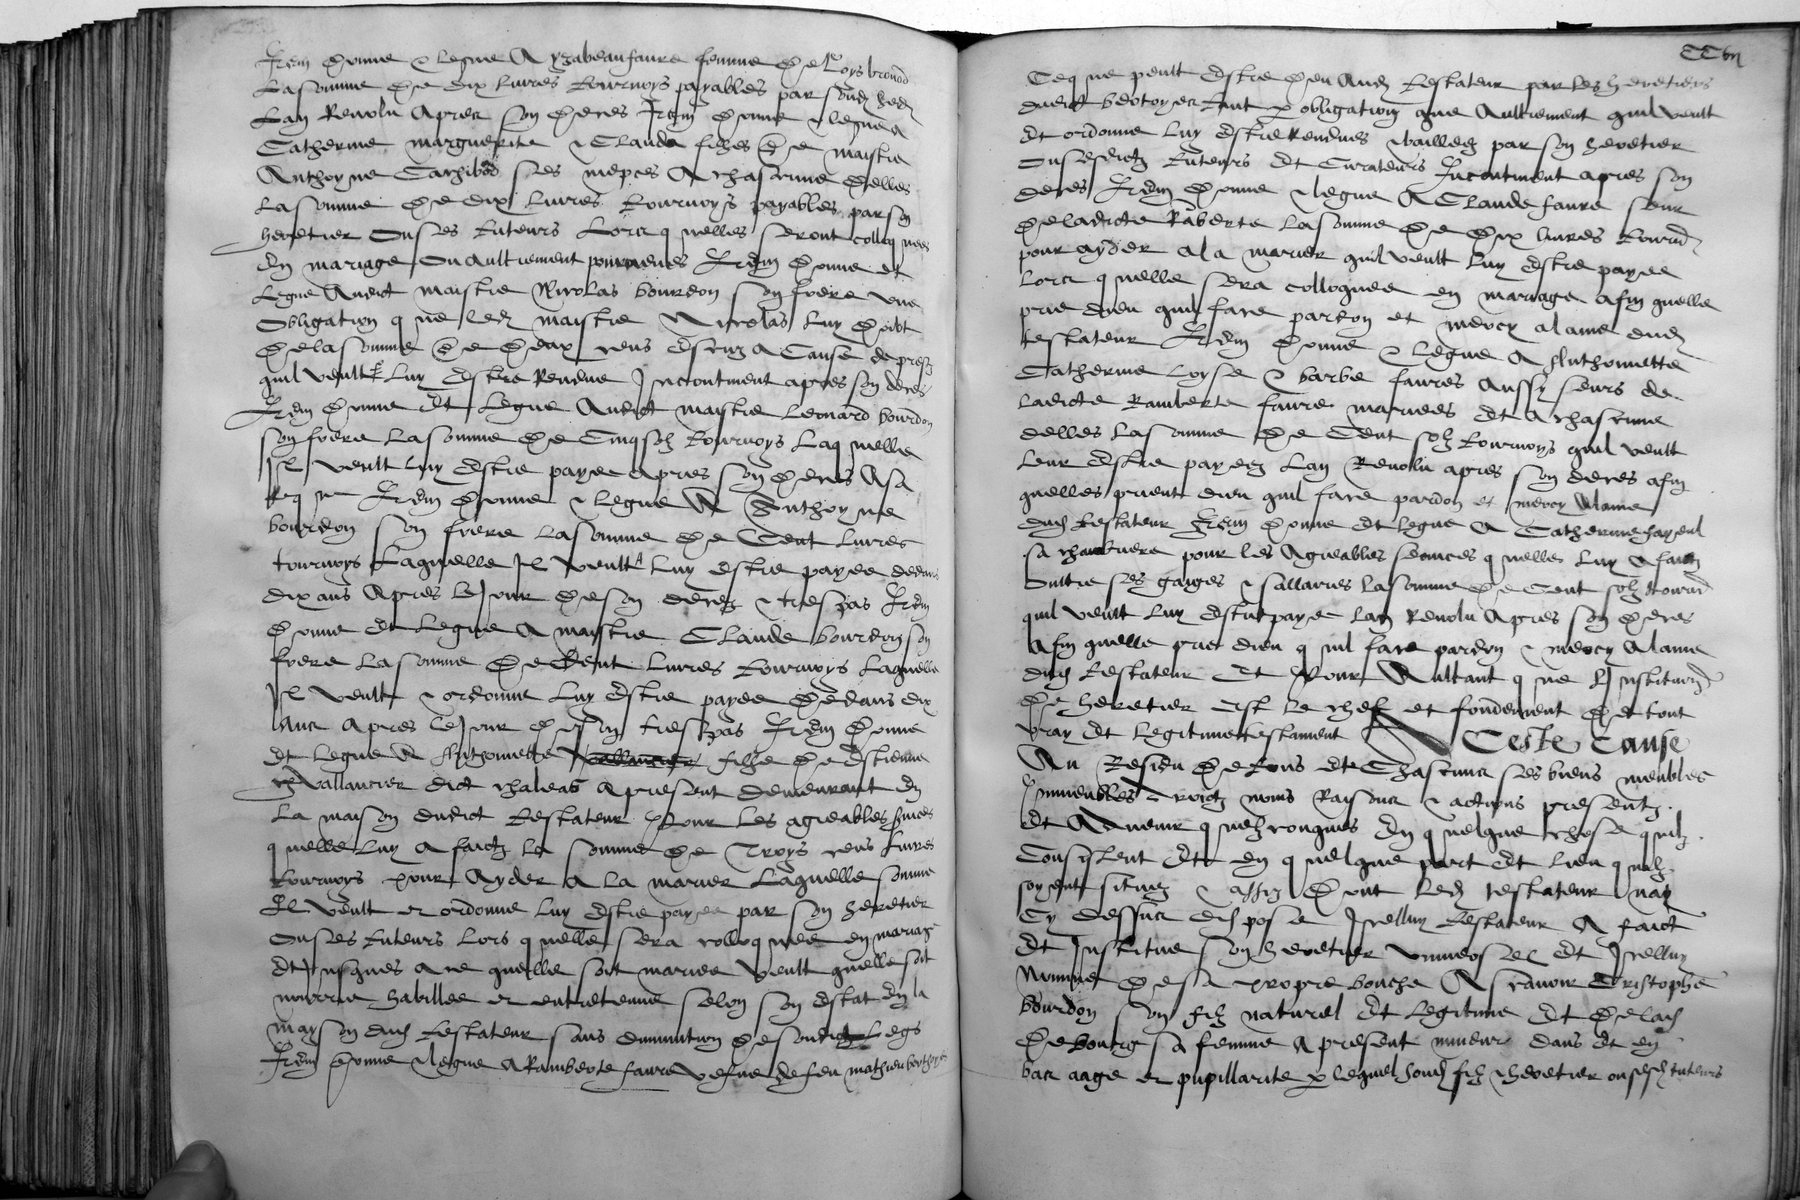 Item donne & legue A yzabeau faure femme de Loys
La somme de dix livres tournoys payables par sond her
Lan Revolu Apres son deces Item donne & legue a
Catherine marguerite & Claude filhes de maistre
Anthoyne ses niepces A chascune delles
La somme de dix livres tournoys payables par son
heretier Ou ses tuteurs Lors quelles seront collo quees
En mariage Ou aultrement pourveues Item donne et
Legue Audict maistre Nicolas bourdon son frere une
Obligation que led maistre Nicolas luy doibt
De la somme de deux cens escuz A Cause de prest
quil veult luy estre Rendue Incontinent apres son deces
Item donne Et Legue Audict maistre Leonard bourdon
son frere La somme de Cinq solz tournoys Laquelle
Il veult luy estre payee apres son deces A sa
Req te Item donne & legue A Anthoyne
bourdon son frere La somme de Cent livres
tournoys Laquelle Il veult luy estre payee dedans
dix ans Apres le Jour de son deces & trespas Item
donne Et Legue A maistre Claude bourdon son
frere La somme de Cent livres tournoys Laquelle
Il veult & ordonne luy estre payee dedans dix
Ans Apres le Jour de son trespas Item donne
Et Legue A Anthoinette filhe de Estienne
Vallancier dict chaleas A present demeurant En
La maison dudict testateur Pour les agreables services
quelle luy A faictz La somme de Troys cens livres
tournoys pour Ayder A la marier Laquelle somme
Il veult et ordonne luy estre payee par son heretier
Ou ses tuteurs Lors quelle sera colloquee en mariage
Et Jusques A ce quelle soit mariee veult quelle soit
nourrie habillee et entretenue selon son estat En la
mayson dud testateur sans diminution de sondict Legs
Item donne & legue A Ramberte faure vefve de feu mathieu
CCvii
Ce que peult Estre deu Aud testateur par les heretiers
dudict tant p obligation que Aultrement quil veult
Et ordonne luy Estre Rendues & baillez par son heretier
Ou sesdictz tuteurs Et Curateurs Incontinent apres son
deces Item donne & legue A Claude faure seur
De ladicte Ramberte La somme de dix livres tournois
pour ayder A la marier quil veult luy Estre payee
Lors quelle sera colloquee en mariage afin quelle
prie dieu quil face pardon et mercy a lame dud
testateur Item donne & legue A Anthoinette
Catherine Loyse & barbe faures Aussy seurs de
Ladicte Ramberte faure mariees Et A chascune
delles La somme de Cent solz tournoys quil veult
Leur Estre payez Lan Revolu apres son deces afin
quelles prient dieu quil face pardon et mercy A lame
dud testateur Item donne Et legue A Catherine
sa chambriere pour les Agreables services quelle luy A faictz
Oultre ses gaiges & sallaries La somme de Cent solz tournois
quil veult luy Estre paye Lan Revolu Apres son deces
Afin quelle prie dieu quil face pardon & mercy A lame
dud testateur Et Pour Aultant que Linstitution
De heretier Est le chef et fondement de tout
vray Et legitime testament A Ceste Cause
Au Residu de tous Et Chascuns ses biens meubles
Immeubles droictz noms Raisons & actions presentz
Et Advenir quelz conques En quelque chose quilz
Consistent Et en quelque part Et lieu quilz
soyent situez & assiz Dont led testateur nay
Cy dessus dispose Icelluy testateur A faict
Et Institue son heretier universel Et Icelluy
Nomme de sa propre bouche Ascavoir Cristophe
bourdon son filz naturel Et Legitime Et de lad
De bourg sa femme A present mineur dans Et en
bas aage et pupillarite p lequel sond filz & heretier ou sesd tuteurs